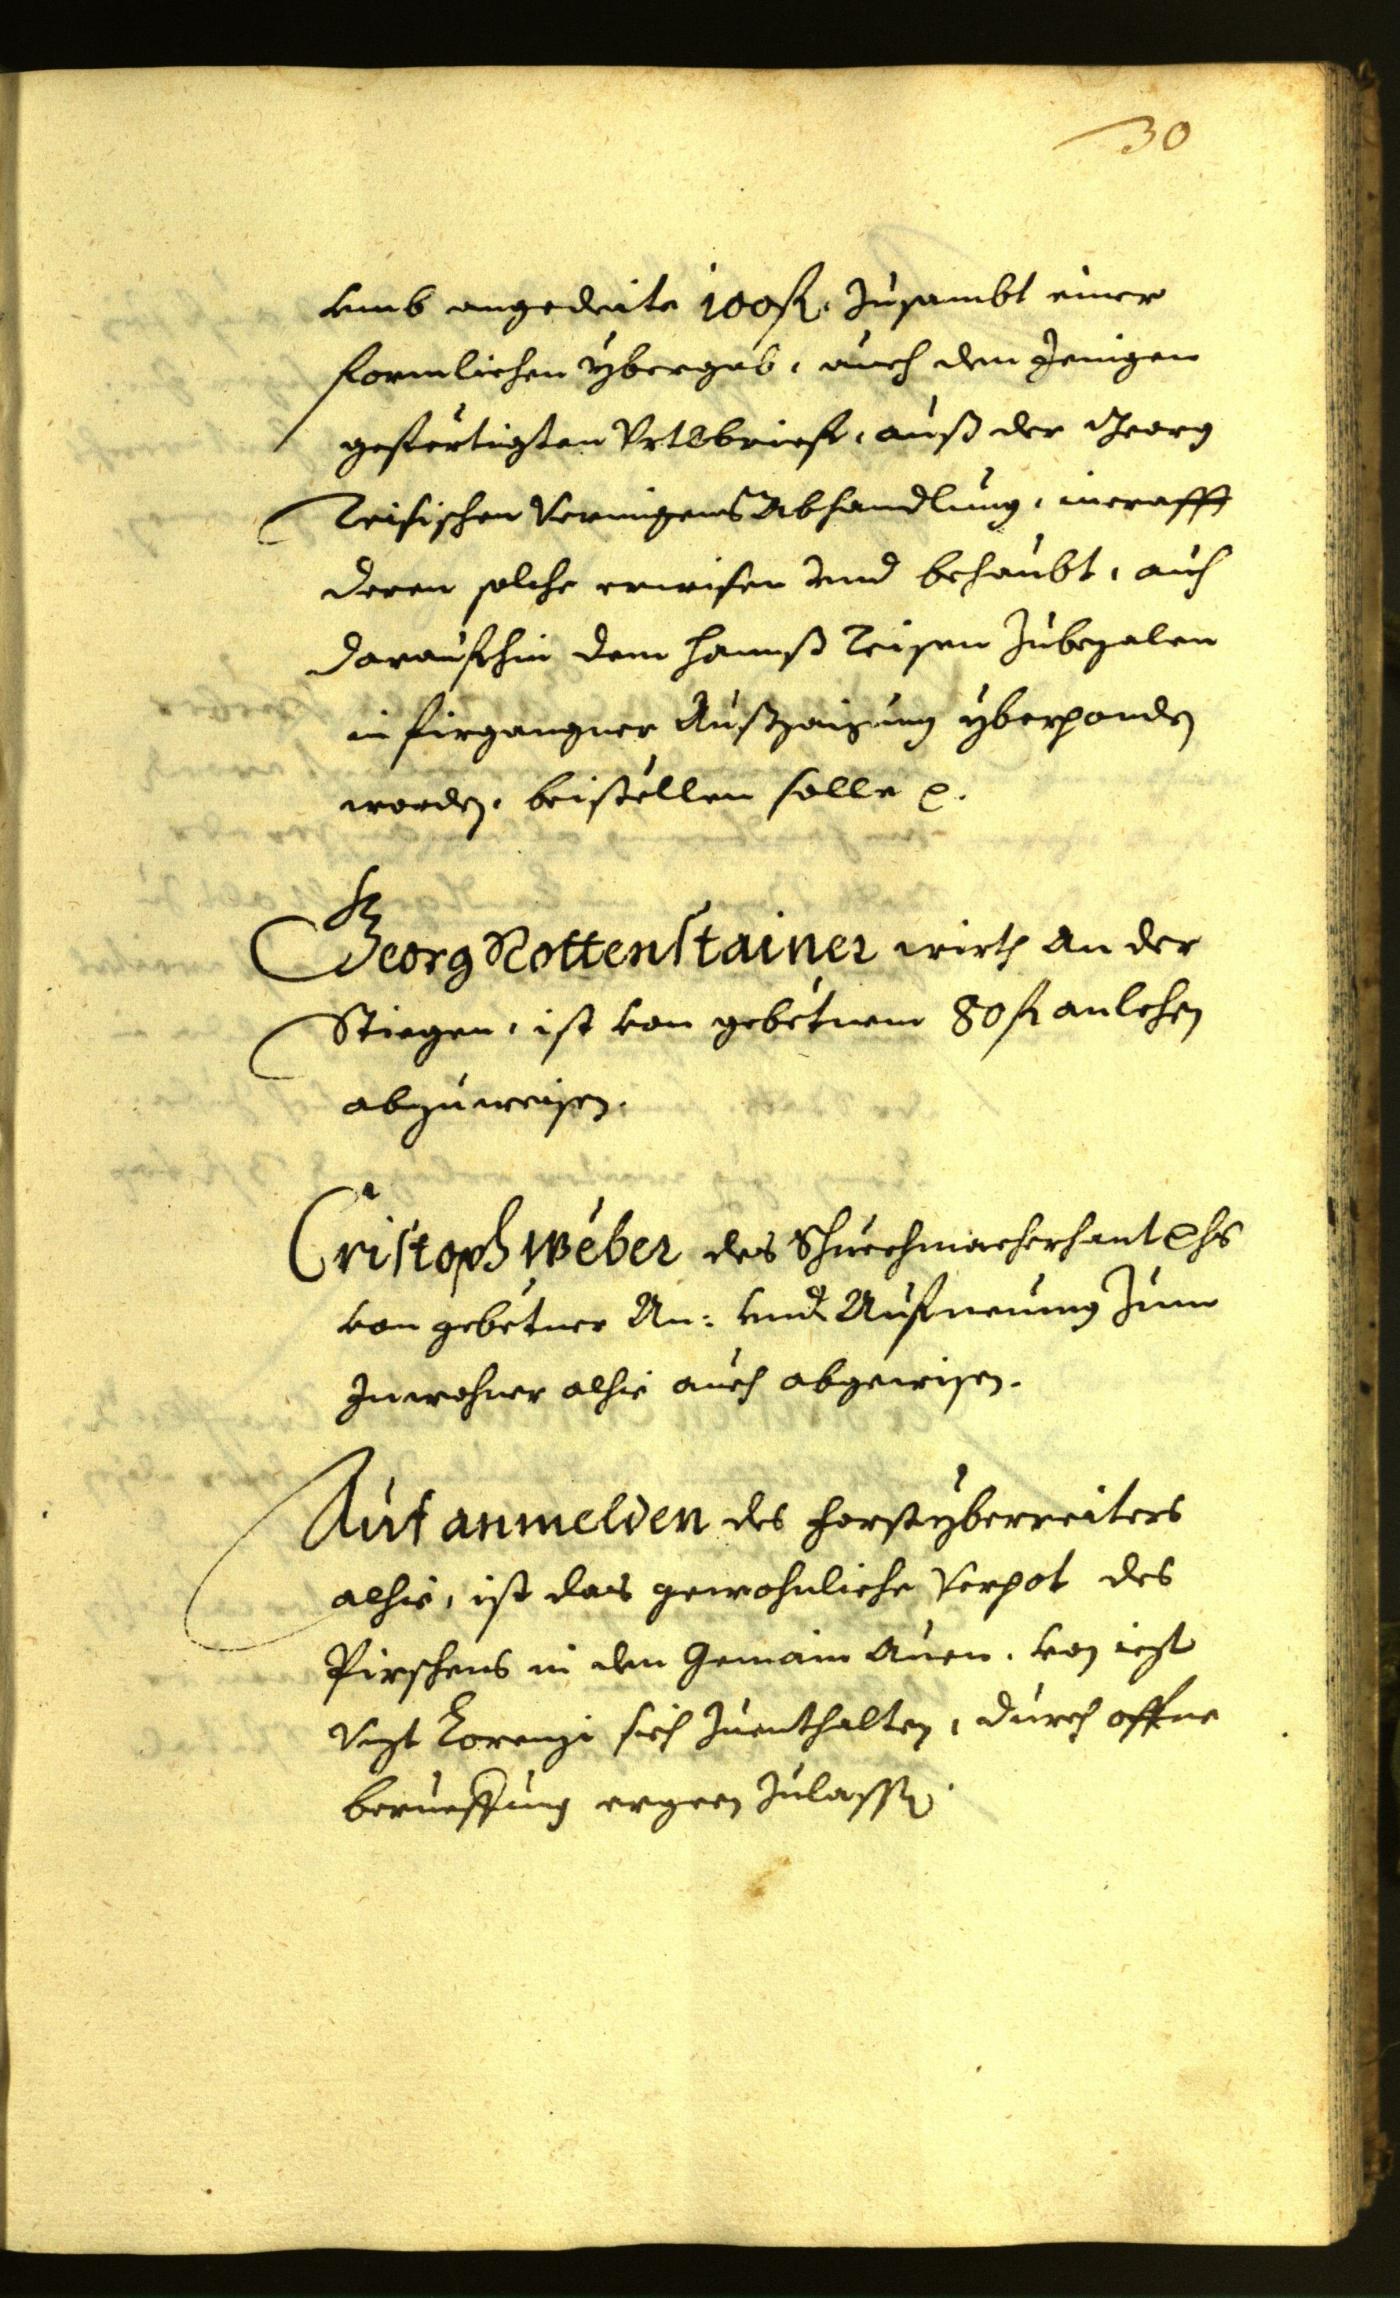 30
umb angedeite 100 fl. zusambt einer
formlichen ybergab, auch dem Jenigen
gefertigten Vrtlbrieff, auß der Georg
Leisischen Vermigens Abhandlung, incrafft
deren solche erwisen vnd behaubt, auch
daraufhin dem Hannß Leisen zubezalen
in firgangner Außzaigung yberponden
worden, beistellen solle etc.
Georg Rottenstainer wirth an der
Stiegen, ist von gebetnem 80 fl anlehen
abzuweisen.
Cristoph Weber des Schuechmacherhantwerchs
von gebetner An: vnd Aufnemung zum
Inwohner alhie auch abgewisen.
Auf anmelden des Forstyberreiters
alhie, ist das gewohnliche Verpot des
Pirschens in den Gemain Auen, von iezt
vnzt Lorenzi sich zuenthalten, durch offne
berueffung ergeen zulassen.